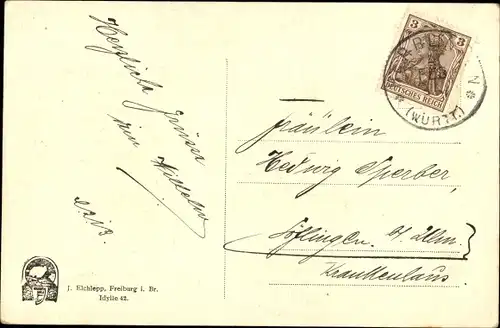 Herzliche Grüsse
von
3
3
DEUTSCHES REICH
(WÜRTT.)
Fräulein
Hedwig Sperber
Söflingen b/ Ulm
Krankenhaus
J. Elchlepp, Freiburg i. Br.
Idylle 42.